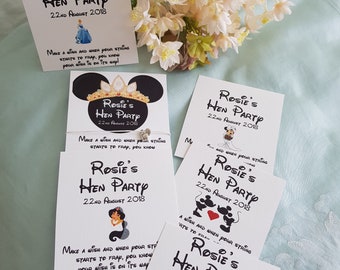 HEN PARTY
22ND AUGUST 2018
MAKE A WISH AND WHEN YOUR STRING
STARTS TO FRAY, YOU KNOW
YOUR WISH IS ON ITS WAY!
ROSIE'S
HEN PARTY
22ND AUGUST 2018
MAKE A WISH AND WHEN YOUR STRING
STARTS TO FRAY, YOU KNOW
ROSIE'S
HEN PARTY
22ND AUGUST 2018
MAKE A WISH AND WHEN YOUR STRING
ROSIE'S
HEN PARTY
22ND AUGUST 2018
MAKE A WISH AND WHEN YOUR STRING
STARTS TO FRAY, YOU KNOW
ROSIE'S
HEN PARTY
22ND AUGUST 2018
MAKE A WISH AND WHEN YOUR
ROSIE'S
HEN PARTY